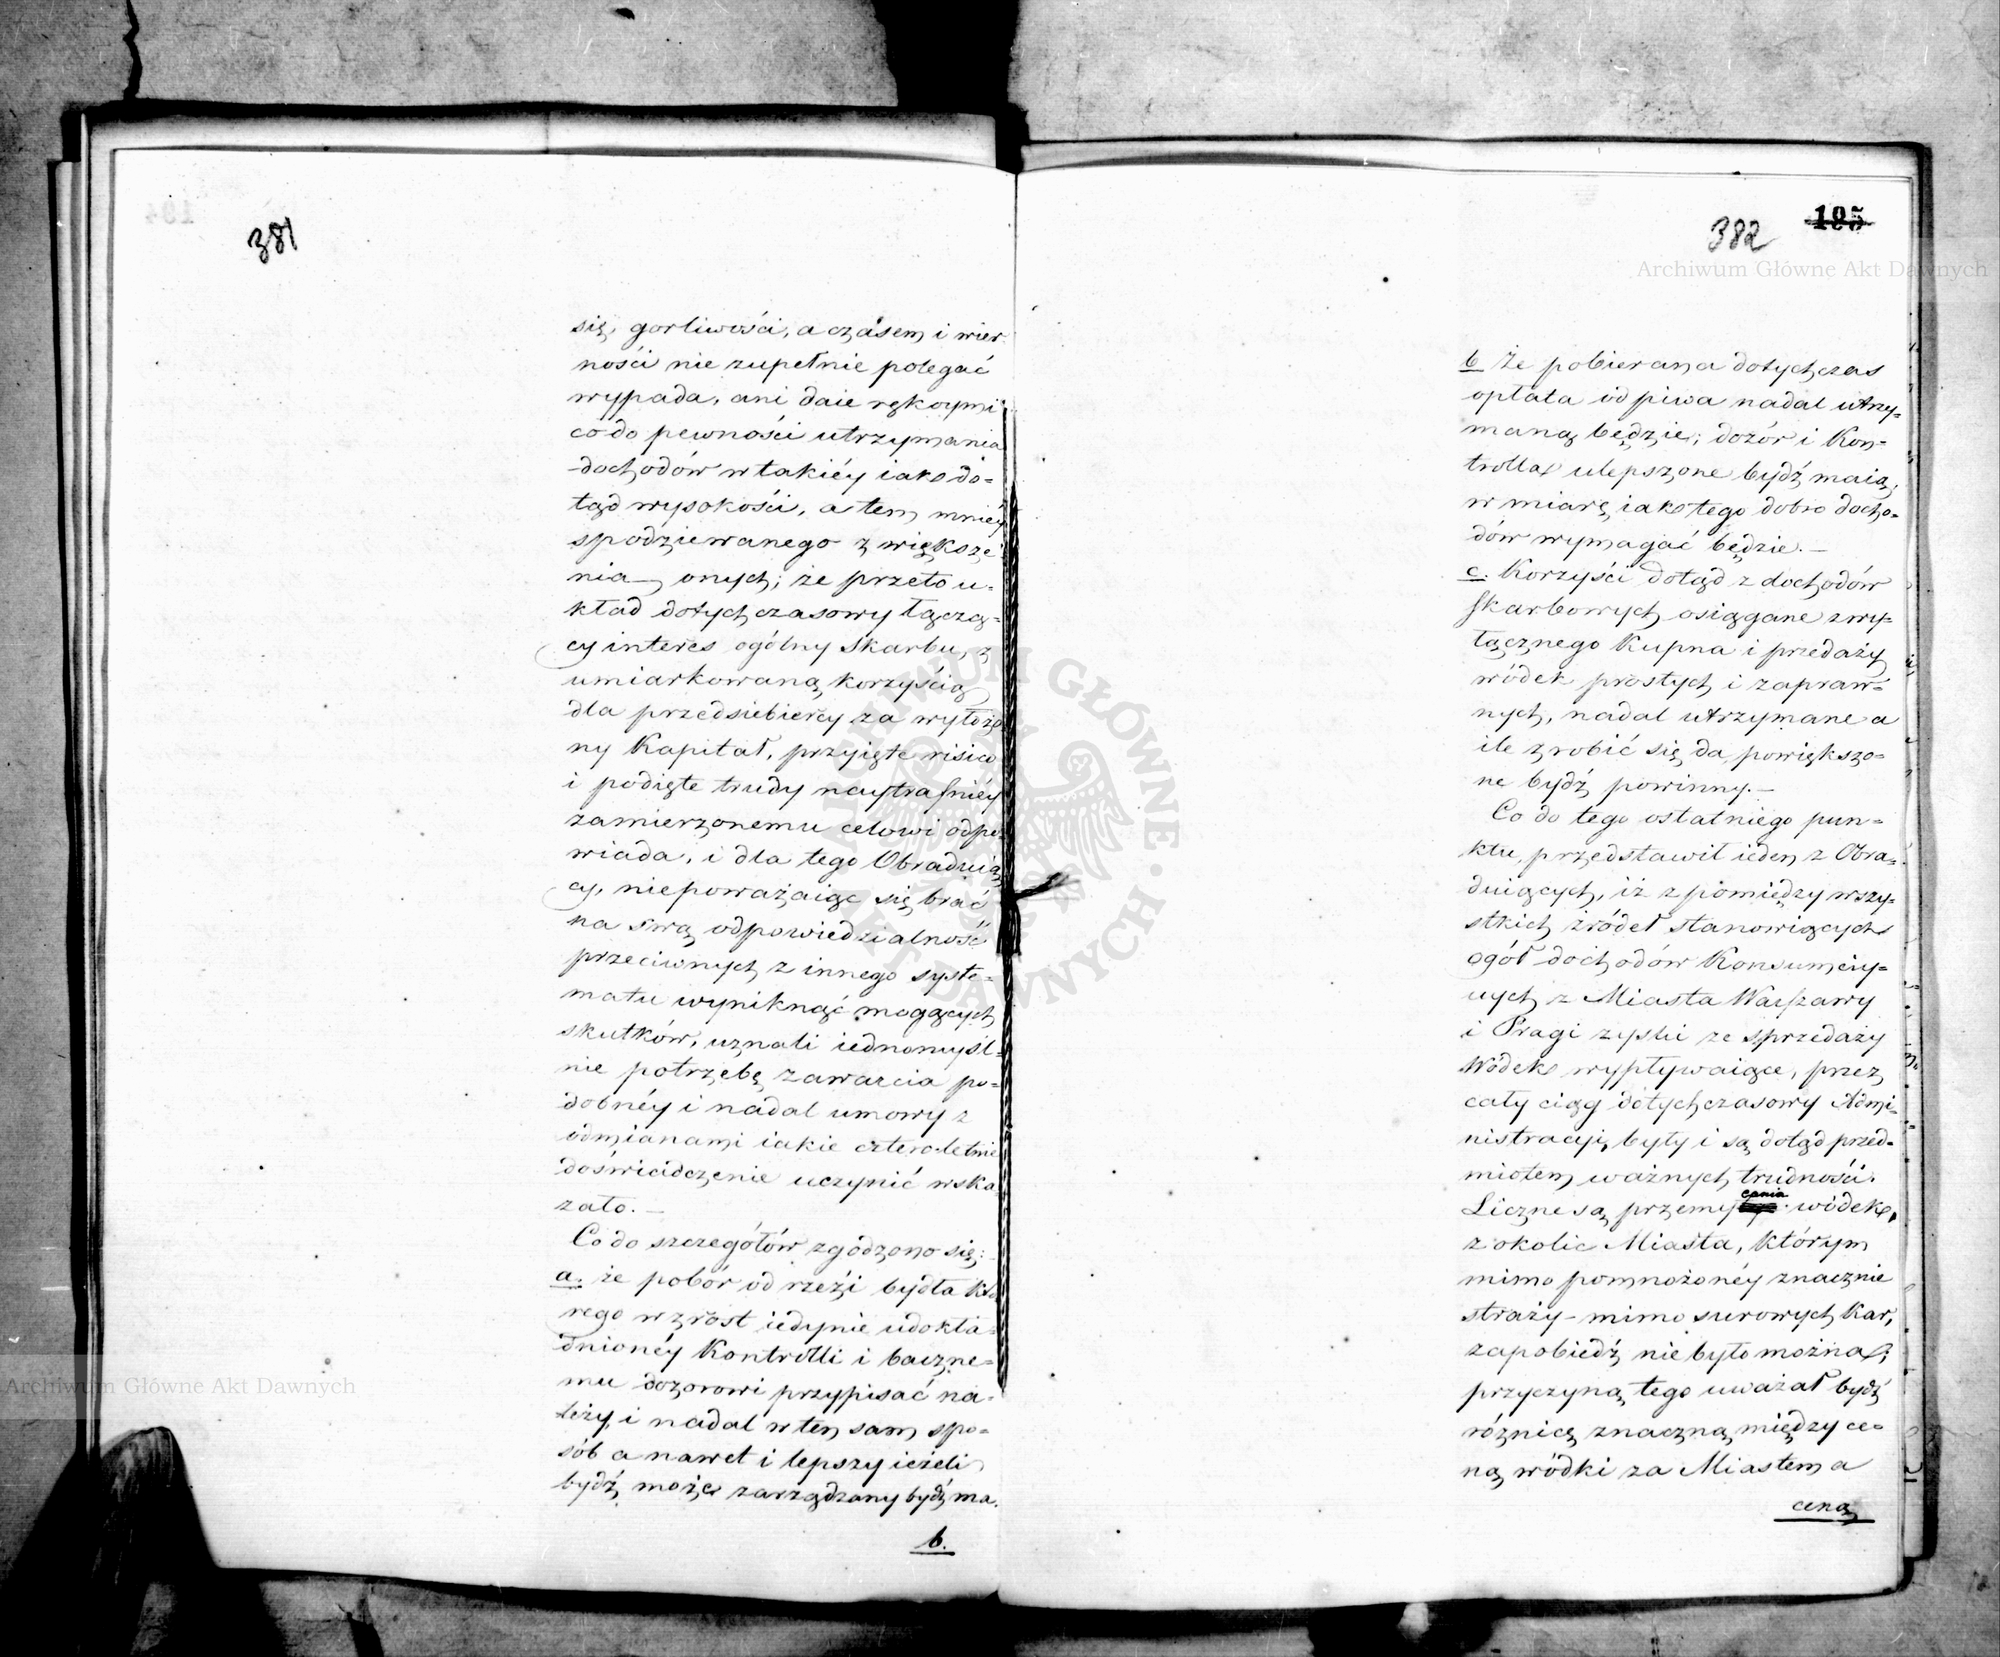 381
się gorliwości, a czasem i wier-
ności nie zupełnie polegać
wypada, ani daie rękoymi
co do pewności utrzymania
dochodów w takiéy iak do-
tąd wysokości, a tem mniéy
spodziewanego zwiększe
nia onych; że przeto u-
kład dotychczasowy łączą-
cy interes ogólny Skarbu, z
umiarkowaną korzyścią
dla przedsiebiercy za wyłożo
ny Kapitał, przyięte risico
i podięte trudy naytrafniéy
zamierzonemu celowi odpo
wiada, i dla tego Obraduią
cy, niepoważaiąc się brać
na swą odpowiedzialność
przeciwnych z innego syste-
matu wyniknąć mogących
skutków, uznali iednomyśl-
nie potrzebę zawarcia po-
dobnéy i nadal umowy z
odmianami iakie cztero-letnie
doświadczenie uczynić wska
zało. —
Co do szczegółów zgodzono się:
a. że pobór od rzezi bydła któ
rego wzrost iedynie udokła-
dnionéy Kontrolli i baczne-
mu dozorowi przypisać na-
leży, i nadal w ten sam spo-
sób a nawet i lepszy ieżeli
bydź może zarządzany bydź ma.
b.
382 195
b że pobierana dotychczas
opłata od piwa nadal utrzy-
maną będzie; dozór i Kon-
trolla ulepszone bydź maią,
w miarę iak tego dobro docho-
dów wymagać będzie. —
c. Korzyści dotąd z dochodów
skarbowych osiągane z wy-
łącznego Kupna i przedaży
wódek prostych i zapraw-
nych, nadal utrzymane a
ile zrobić się da powiększo-
ne bydź powinny. —
Co do tego ostatniego pun-
ktu, przedstawił ieden z Obra-
duiących, iż z pomiędzy wszy-
stkich źródeł stanowiących
ogół dochodów Konsumcyy-
nych z Miasta Warszawy
i Pragi zyski ze sprzedaży
Wódek wypływaiące, przez
cały ciąg dotychczasowy Admi-
nistracyi, były i są dotąd przed-
miotem ważnych trudności.
cania
Liczne są przemy wódek,
z okolic Miasta, którym
mimo pomnożonéy znacznie
straży - mimo surowych kar,
zapobiedź nie było można;
przyczyną tego uważał bydź
różnicę znaczną między ce-
ną wódki za Miastem a
ceną
Archiwum Główne Akt Dawnych
Archiwum Główne Akt Dawnych
ARCHIWUM GŁÓWNE AKT DAWNYCH